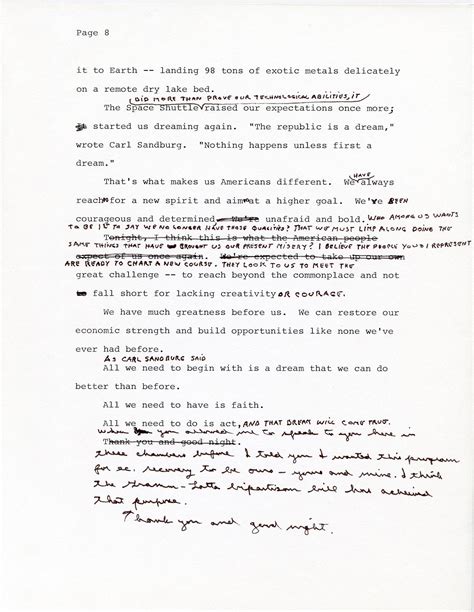 Page 8
it to Earth -- landing 98 tons of exotic metals delicately
on a remote dry lake bed.
DID MORE THAN PROVE OUR TECHNOLOGICAL ABILITIES, IT
The Space Shuttle raised our expectations once more;
started us dreaming again. "The republic is a dream,"
wrote Carl Sandburg. "Nothing happens unless first a
dream."
HAVE
That's what makes us Americans different. We always
reach for a new spirit and aim at a higher goal. We've BEEN
courageous and determined We're unafraid and bold. WHO AMONG US WANTS
TO BE 1st TO SAY WE NO LONGER HAVE THOSE QUALITIES? THAT WE MUST LIMP ALONG DOING THE
Tonight, I think this is what the American people
SAME THINGS THAT HAVE BROUGHT US OUR PRESENT MISERY? I BELIEVE THE PEOPLE YOU & I REPRESENT
expect of us once again. We're expected to take up our own
ARE READY TO CHART A NEW COURSE. THEY LOOK TO US TO MEET THE
great challenge -- to reach beyond the commonplace and not
fall short for lacking creativity OR COURAGE.
We have much greatness before us. We can restore our
economic strength and build opportunities like none we've
ever had before.
AS CARL SANDBURG SAID
All we need to begin with is a dream that we can do
better than before.
All we need to have is faith.
All we need to do is act, AND THAT DREAM WILL COME TRUE.
When you allowed me to speak to you here in
Thank you and good night.
these chambers before I told you I wanted this program
for ec. recovery to be ours - yours and mine. I think
the Gramm-Latta bipartisan bill has achieved
that purpose.
Thank you and good night.